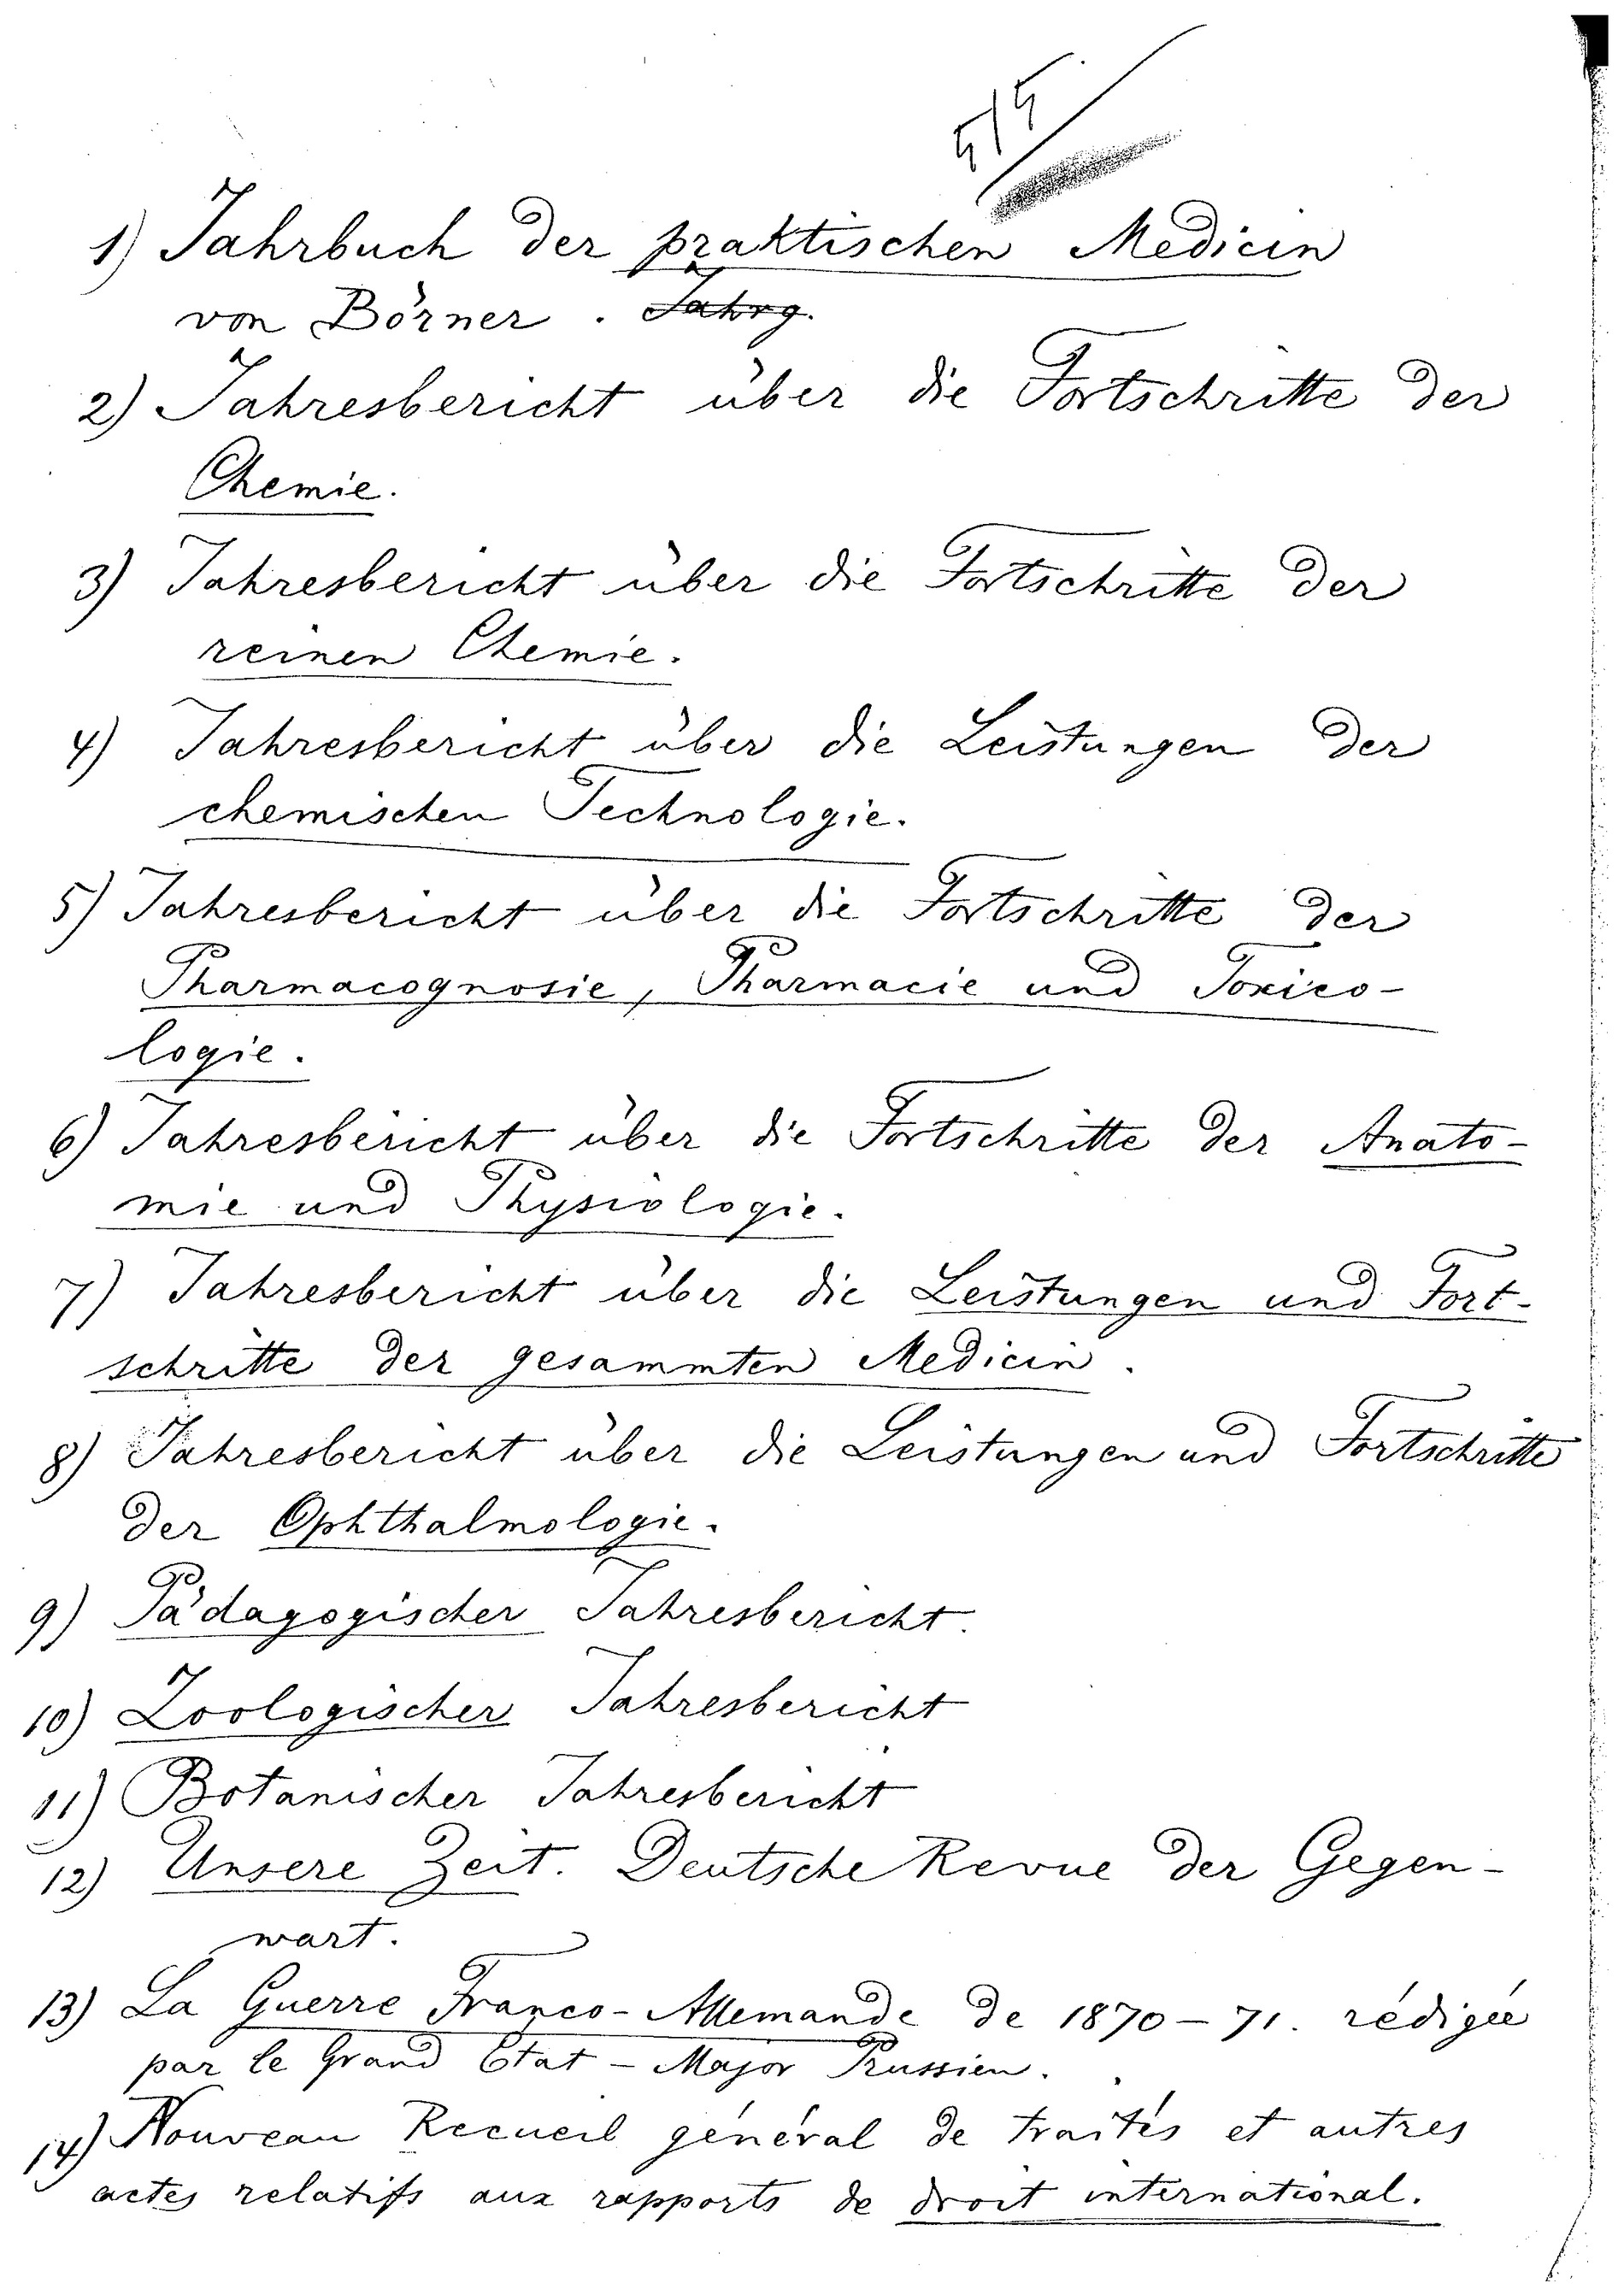 1) Jahrbuch der praktischen Medicin
von Börner. Jahrg.
2) Jahresbericht über die Fortschritte der
Chemie.
3) Jahresbericht über die Fortschritte der
reinen Chemie.
4) Jahresbericht über die Leistungen der
chemischen Technologie.
5) Jahresbericht über die Fortschritte der
Pharmacognosie, Pharmacie und Toxico-
logie.
6) Jahresbericht über die Fortschritte der Anato-
mie und Physiologie.
7) Jahresbericht über die Leistungen und Fort-
schritte der gesammten Medicin.
8) Jahresbericht über die Leistungen und Fortschritte
der Ophthalmologie.
9) Pädagogischer Jahresbericht.
10) Zoologischer Jahresbericht
11) Botanischer Jahresbericht
12) Unsere Zeit. Deutsche Revue der Gegen-
wart.
13) La Guerre Franco-Allemande de 1870-71. rédigée
par le Grand Etat-Major Prussien.
14) Nouveau Recueil général de traités et autres
actes relatifs aux rapports de droit international.